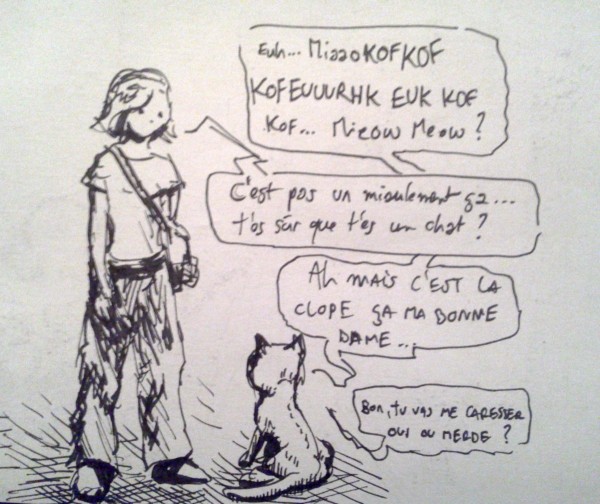 Euh... MiaaoKOFKOF
KOFEUUURHK EUK KOF
KOF... Mieow Meow ?
C'est pas un miaulement ça...
t'es sûr que t'es un chat ?
AH MAIS C'EST LA
CLOPE ÇA MA BONNE
DAME...
BON, TU VAS ME CARESSER
OUI OU MERDE ?